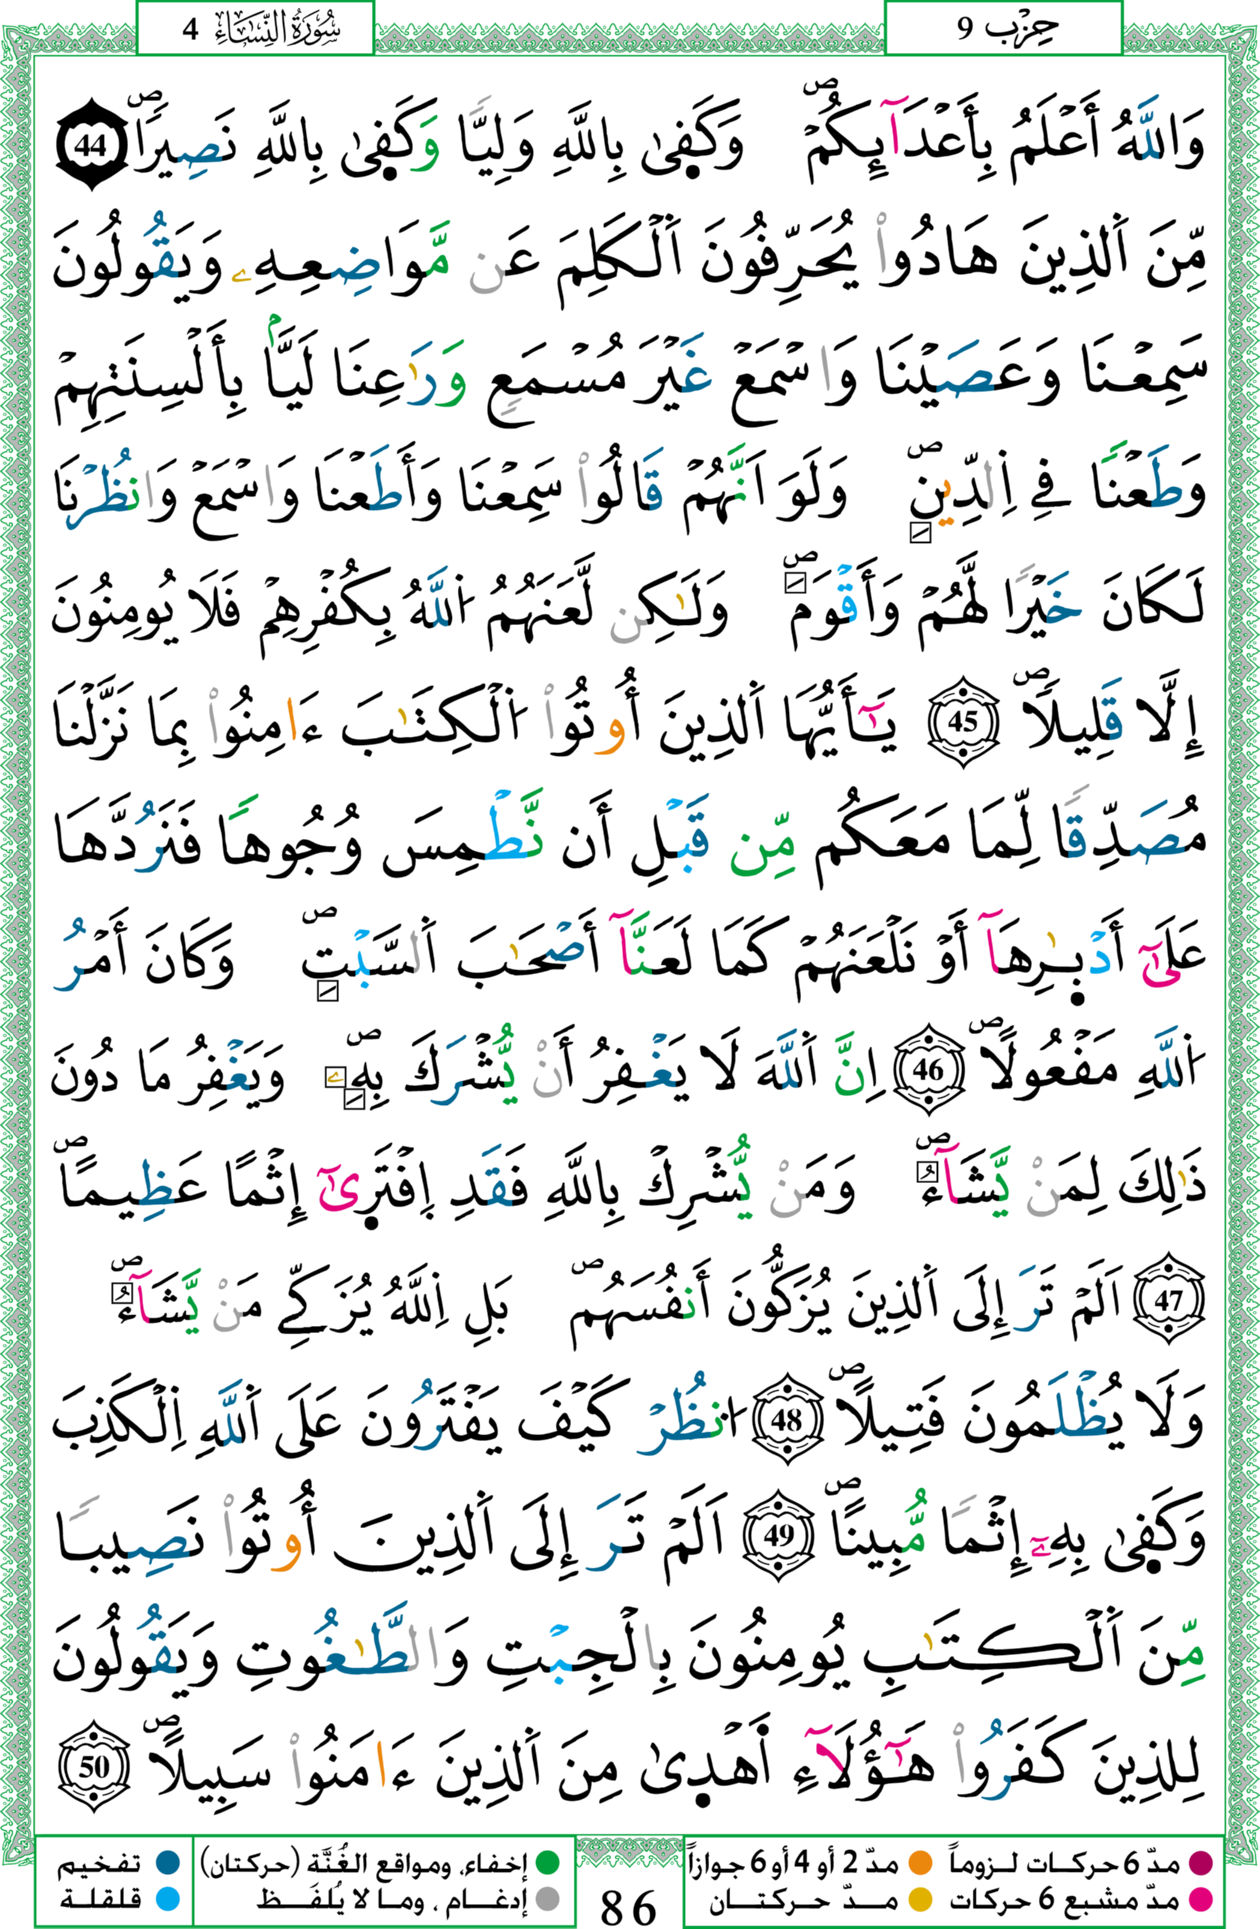 حِزْب 9
سُورَةُ النِّسَاءِ 4
وَاللَّهُ أَعْلَمُ بِأَعْدَآئِكُمْۖ وَكَفٜىٰ بِاللَّهِ وَلِيّٗا وَكَفٜىٰ بِاللَّهِ نَصِيرٗاۖ 44
مِّنَ اَلذِينَ هَادُواْ يُحَرِّفُونَ اَلْكَلِمَ عَن مَّوَاضِعِهِۦ وَيَقُولُونَ
سَمِعْنَا وَعَصَيْنَا وَاسْمَعْ غَيْرَ مُسْمَعٖ وَرَٰعِنَا لَيَّاۢ بِأَلْسِنَتِهِمْ
وَطَعْنٗا فِے اِلدِّينِۖ وَلَوَ اَنَّهُمْ قَالُواْ سَمِعْنَا وَأَطَعْنَا وَاسْمَعْ وَانظُرْنَا
لَكَانَ خَيْرٗا لَّهُمْ وَأَقْوَمَۖ وَلَٰكِن لَّعَنَهُمُ اُللَّهُ بِكُفْرِهِمْ فَلَا يُومِنُونَ
إِلَّا قَلِيلٗاۖ 45 يَٰٓأَيُّهَا اَلذِينَ أُوتُواْ اُلْكِتَٰبَ ءَامِنُواْ بِمَا نَزَّلْنَا
مُصَدِّقٗا لِّمَا مَعَكُم مِّن قَبْلِ أَن نَّطْمِسَ وُجُوهاٗ فَنَرُدَّهَا
عَلَىٰٓ أَدْبٰٜرِهَآ أَوْ نَلْعَنَهُمْ كَمَا لَعَنَّآ أَصْحَٰبَ اَلسَّبْتِۖ وَكَانَ أَمْرُ
اُللَّهِ مَفْعُولًاۖ 46 اِنَّ اَللَّهَ لَا يَغْفِرُ أَنْ يُّشْرَكَ بِهِۦۖ وَيَغْفِرُ مَا دُونَ
ذَٰلِكَ لِمَنْ يَّشَآءُۖ وَمَنْ يُّشْرِكْ بِاللَّهِ فَقَدِ اِفْتَرٜىٰٓ إِثْمًا عَظِيمًاۖ
47 اَلَمْ تَرَ إِلَى اَلذِينَ يُزَكُّونَ أَنفُسَهُمۖ بَلِ اِللَّهُ يُزَكِّے مَنْ يَّشَآءُۖ
وَلَا يُظْلَمُونَ فَتِيلًاۖ 48 اُنظُرْ كَيْفَ يَفْتَرُونَ عَلَى اَللَّهِ اِلْكَذِبَ
وَكَفٜىٰ بِهِۦٓ إِثْمٗا مُّبِينًاۖ 49 اَلَمْ تَرَ إِلَى اَلذِينَ أُوتُواْ نَصِيبٗا
مِّنَ اَلْكِتَٰبِ يُومِنُونَ بِالْجِبْتِ وَالطَّٰغُوتِ وَيَقُولُونَ
لِلذِينَ كَفَرُواْ هَٰٓؤُلَآءِ أَهْدٜىٰ مِنَ اَلذِينَ ءَامَنُواْ سَبِيلًاۖ 50
مدّ 6 حركات لـزوماً مدّ 2 أو 4 أو 6 جوازاً إخفاء، ومواقع الغُنَّة (حركتان) تفخيم
مدّ مشبع 6 حركات مدّ حركتـان إدغام ، وما لا يُلفَظ قلقلة
86